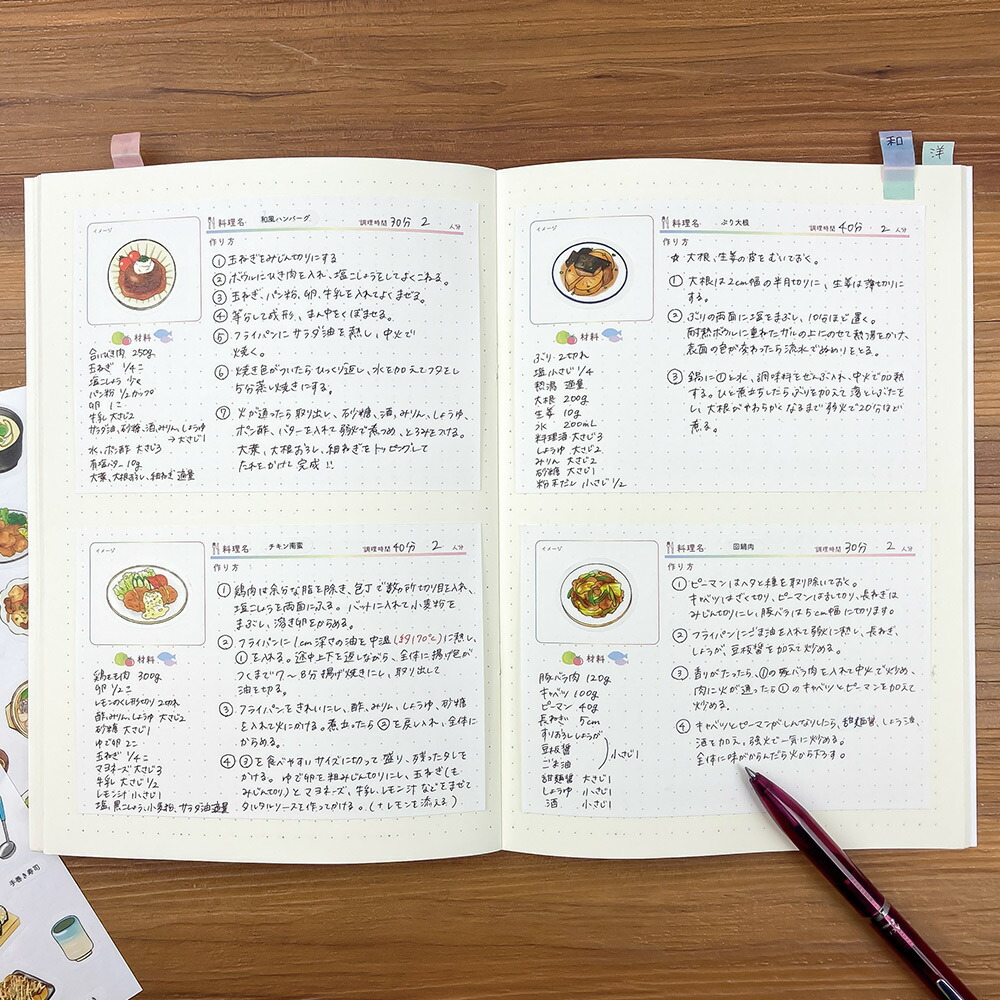 和
洋
イメージ
料理名 和風ハンバーグ 調理時間 30分 2 人分
作り方
① 玉ねぎをみじん切りにする
② ボウルにひき肉を入れ、塩こしょうをしてよくこねる。
③ 玉ねぎ、パン粉、卵、牛乳を入れてよくまぜる。
④ 等分して成形、まん中をくぼませる。
⑤ フライパンにサラダ油を熱し、中火で
焼く。
⑥ 焼き色がついたらひっくり返し、水を加えてフタをし
5分蒸し焼きにする。
⑦ 火が通ったら取り出し、砂糖、酒、みりん、しょうゆ、
ポン酢、バターを入れて弱火で煮つめ、とろみをつける。
大葉、大根おろし、細ねぎをトッピングして
たれをかけて完成!!
材料
合いびき肉 250g
玉ねぎ 1/4コ
塩こしょう 少々
パン粉 1/2カップ
卵 1コ
牛乳 大さじ2
サラダ油、砂糖、酒、みりん、しょうゆ
→大さじ1
水、ポン酢 大さじ3
有塩バター 10g
大葉、大根おろし、細ねぎ 適量
イメージ
料理名 チキン南蛮 調理時間 40分 2 人分
作り方
① 鶏肉は余分な脂を除き、包丁で数ヶ所切り目を入れ、
塩こしょうを両面にふる。バットに入れて小麦粉を
まぶし、溶き卵をからめる。
② フライパンに1cm深さの油を中温(約170℃)に熱し、
①を入れる。途中上下を返しながら、全体に揚げ色が
つくまで7〜8分揚げ焼きにし、取り出して
油をきる。
③ フライパンをきれいにし、酢、みりん、しょうゆ、砂糖
を入れて火にかける。煮立ったら②を戻し入れ、全体に
からめる。
④ ③を食べやすいサイズに切って盛り、残ったタレを
かける。ゆで卵を粗みじん切りにし、玉ねぎ(も
みじん切り)とマヨネーズ、牛乳、レモン汁などをまぜて
タルタルソースを作ってかける。(+レモンを添える)
材料
鶏もも肉 300g
卵 1/2コ
レモンのくし形切り 2切れ
酢、みりん、しょうゆ 大さじ2
砂糖 大さじ1
ゆで卵 2コ
玉ねぎ 1/4コ
マヨネーズ 大さじ3
牛乳 大さじ1/2
レモン汁 小さじ1
塩、黒こしょう、小麦粉、サラダ油 適量
イメージ
料理名 ぶり大根 調理時間 40分 2 人分
作り方
☆ 大根、生姜の皮をむいておく。
① 大根は2cm幅の半月切りに、生姜は薄切りに
する。
② ぶりの両面に塩をまぶし、10分ほど置く。
耐熱ボウルに重ねたザルの上にのせて熱湯をかけ、
表面の色が変わったら流水でぬめりをとる。
③ 鍋に①と水、調味料をぜんぶ入れ、中火で加熱
する。ひと煮立ちしたらぶりを加えて落としぶたを
し、大根がやわらかくなるまで弱火で20分ほど
煮る。
材料
ぶり 2切れ
塩 小さじ1/4
熱湯 適量
大根 200g
生姜 10g
水 200mL
料理酒 大さじ3
しょうゆ 大さじ2
みりん 大さじ2
砂糖 大さじ1
粉末だし 小さじ1/2
イメージ
料理名 回鍋肉 調理時間 30分 2 人分
作り方
① ピーマンはヘタと種を取り除いておく。
キャベツはざく切り、ピーマンは乱切り、長ねぎは
みじん切りにし、豚バラは5cm幅に切ります。
② フライパンにごま油を入れて弱火に熱し、長ねぎ、
しょうが、豆板醤を加えて炒める。
③ 香りがたったら、①の豚バラ肉を入れて中火で炒め、
肉に火が通ったら①のキャベツとピーマンを加えて
炒める。
④ キャベツとピーマンがしんなりしたら、甜麺醤、しょうゆ、
酒を加え、強火で一気に炒める。
全体に味がからんだら火から下ろす。
材料
豚バラ肉 120g
キャベツ 100g
ピーマン 40g
長ねぎ 5cm
すりおろししょうが
豆板醤 小さじ1
ごま油
甜麺醤 大さじ1
しょうゆ 小さじ1
酒 小さじ1
手巻き寿司